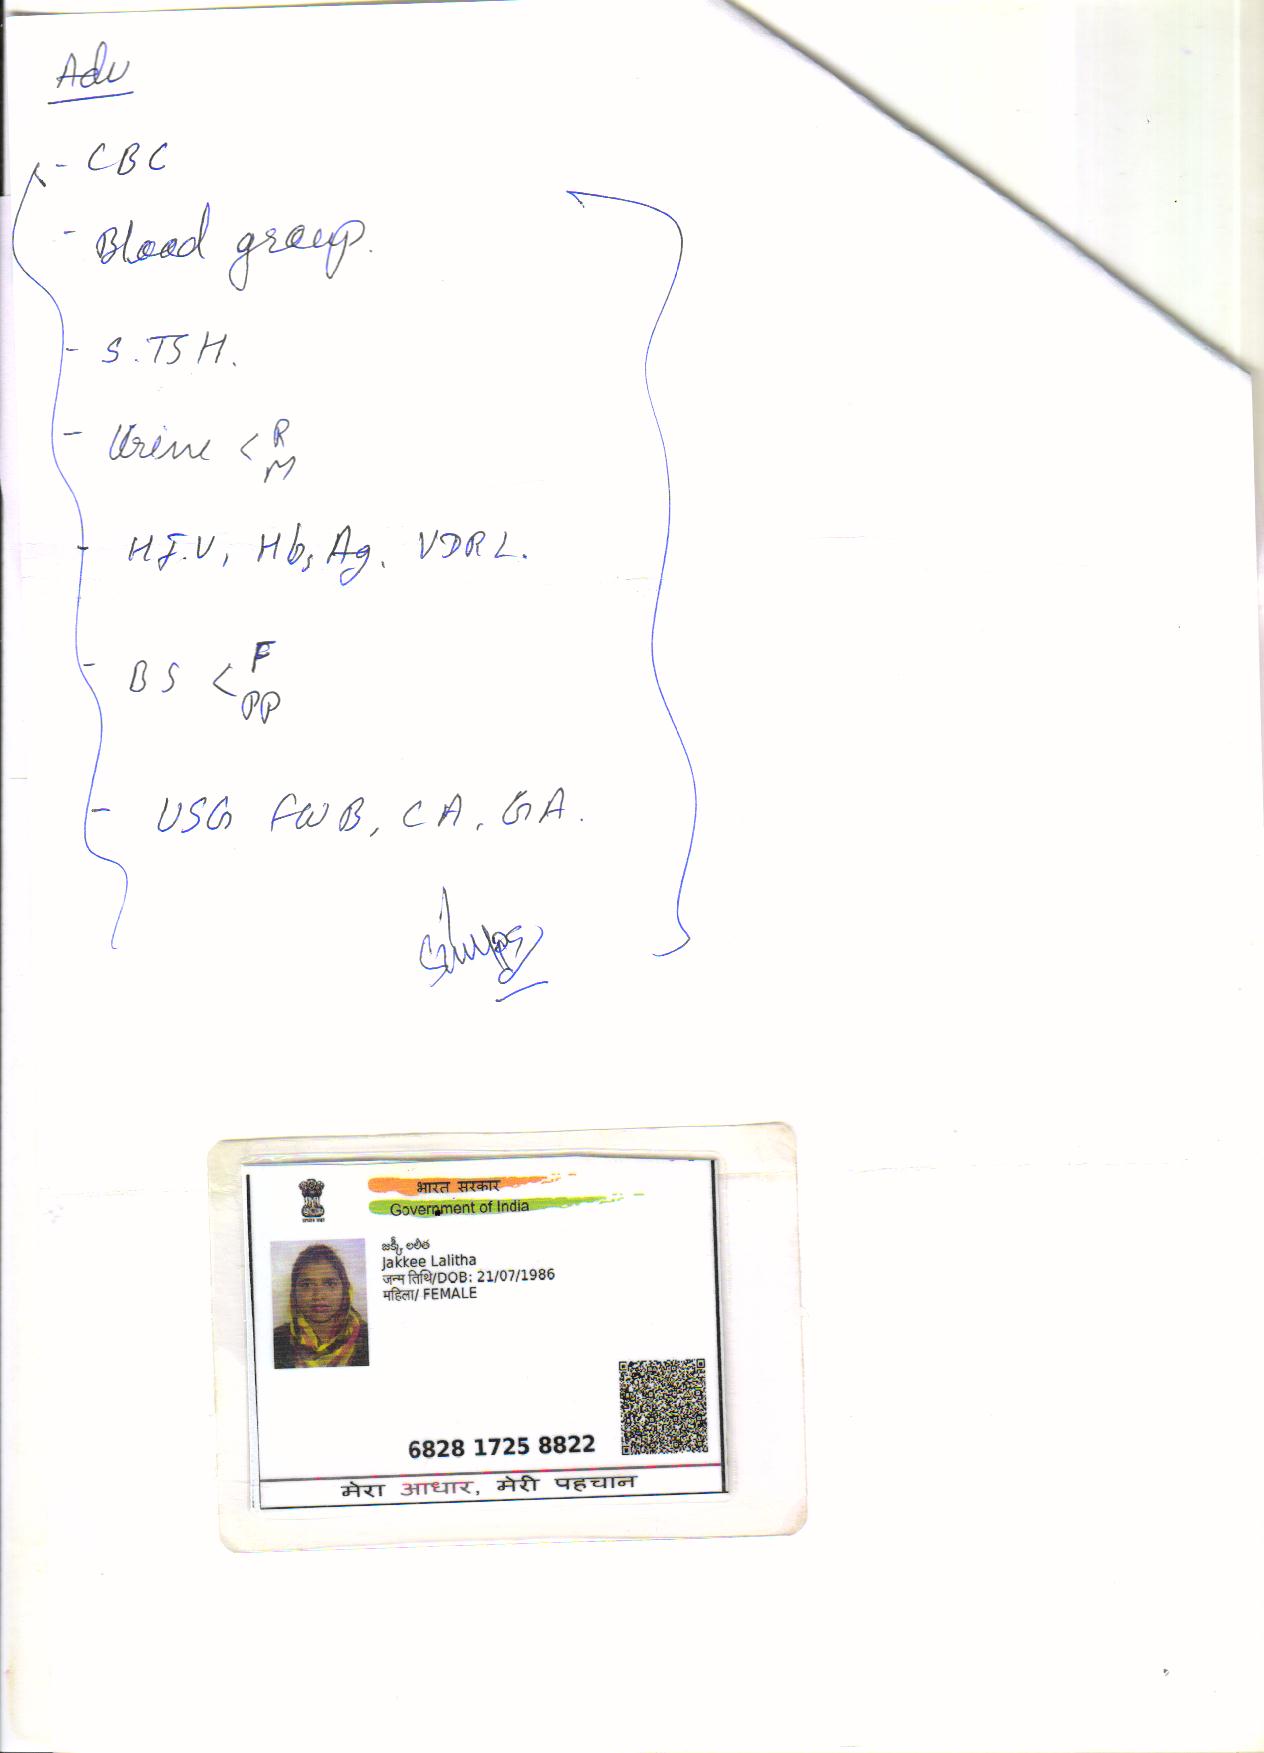 Adv
- CBC
- Blood group.
- S.TSH.
- Urine < R
M
- HIV, HbsAg, VDRL.
- BS < F
PP
- USG FWB, CA, GA.
भारत सरकार
Government of India
జక్కీ లలిత
Jakkee Lalitha
जन्म तिथि/DOB: 21/07/1986
महिला/ FEMALE
6828 1725 8822
मेरा आधार, मेरी पहचान